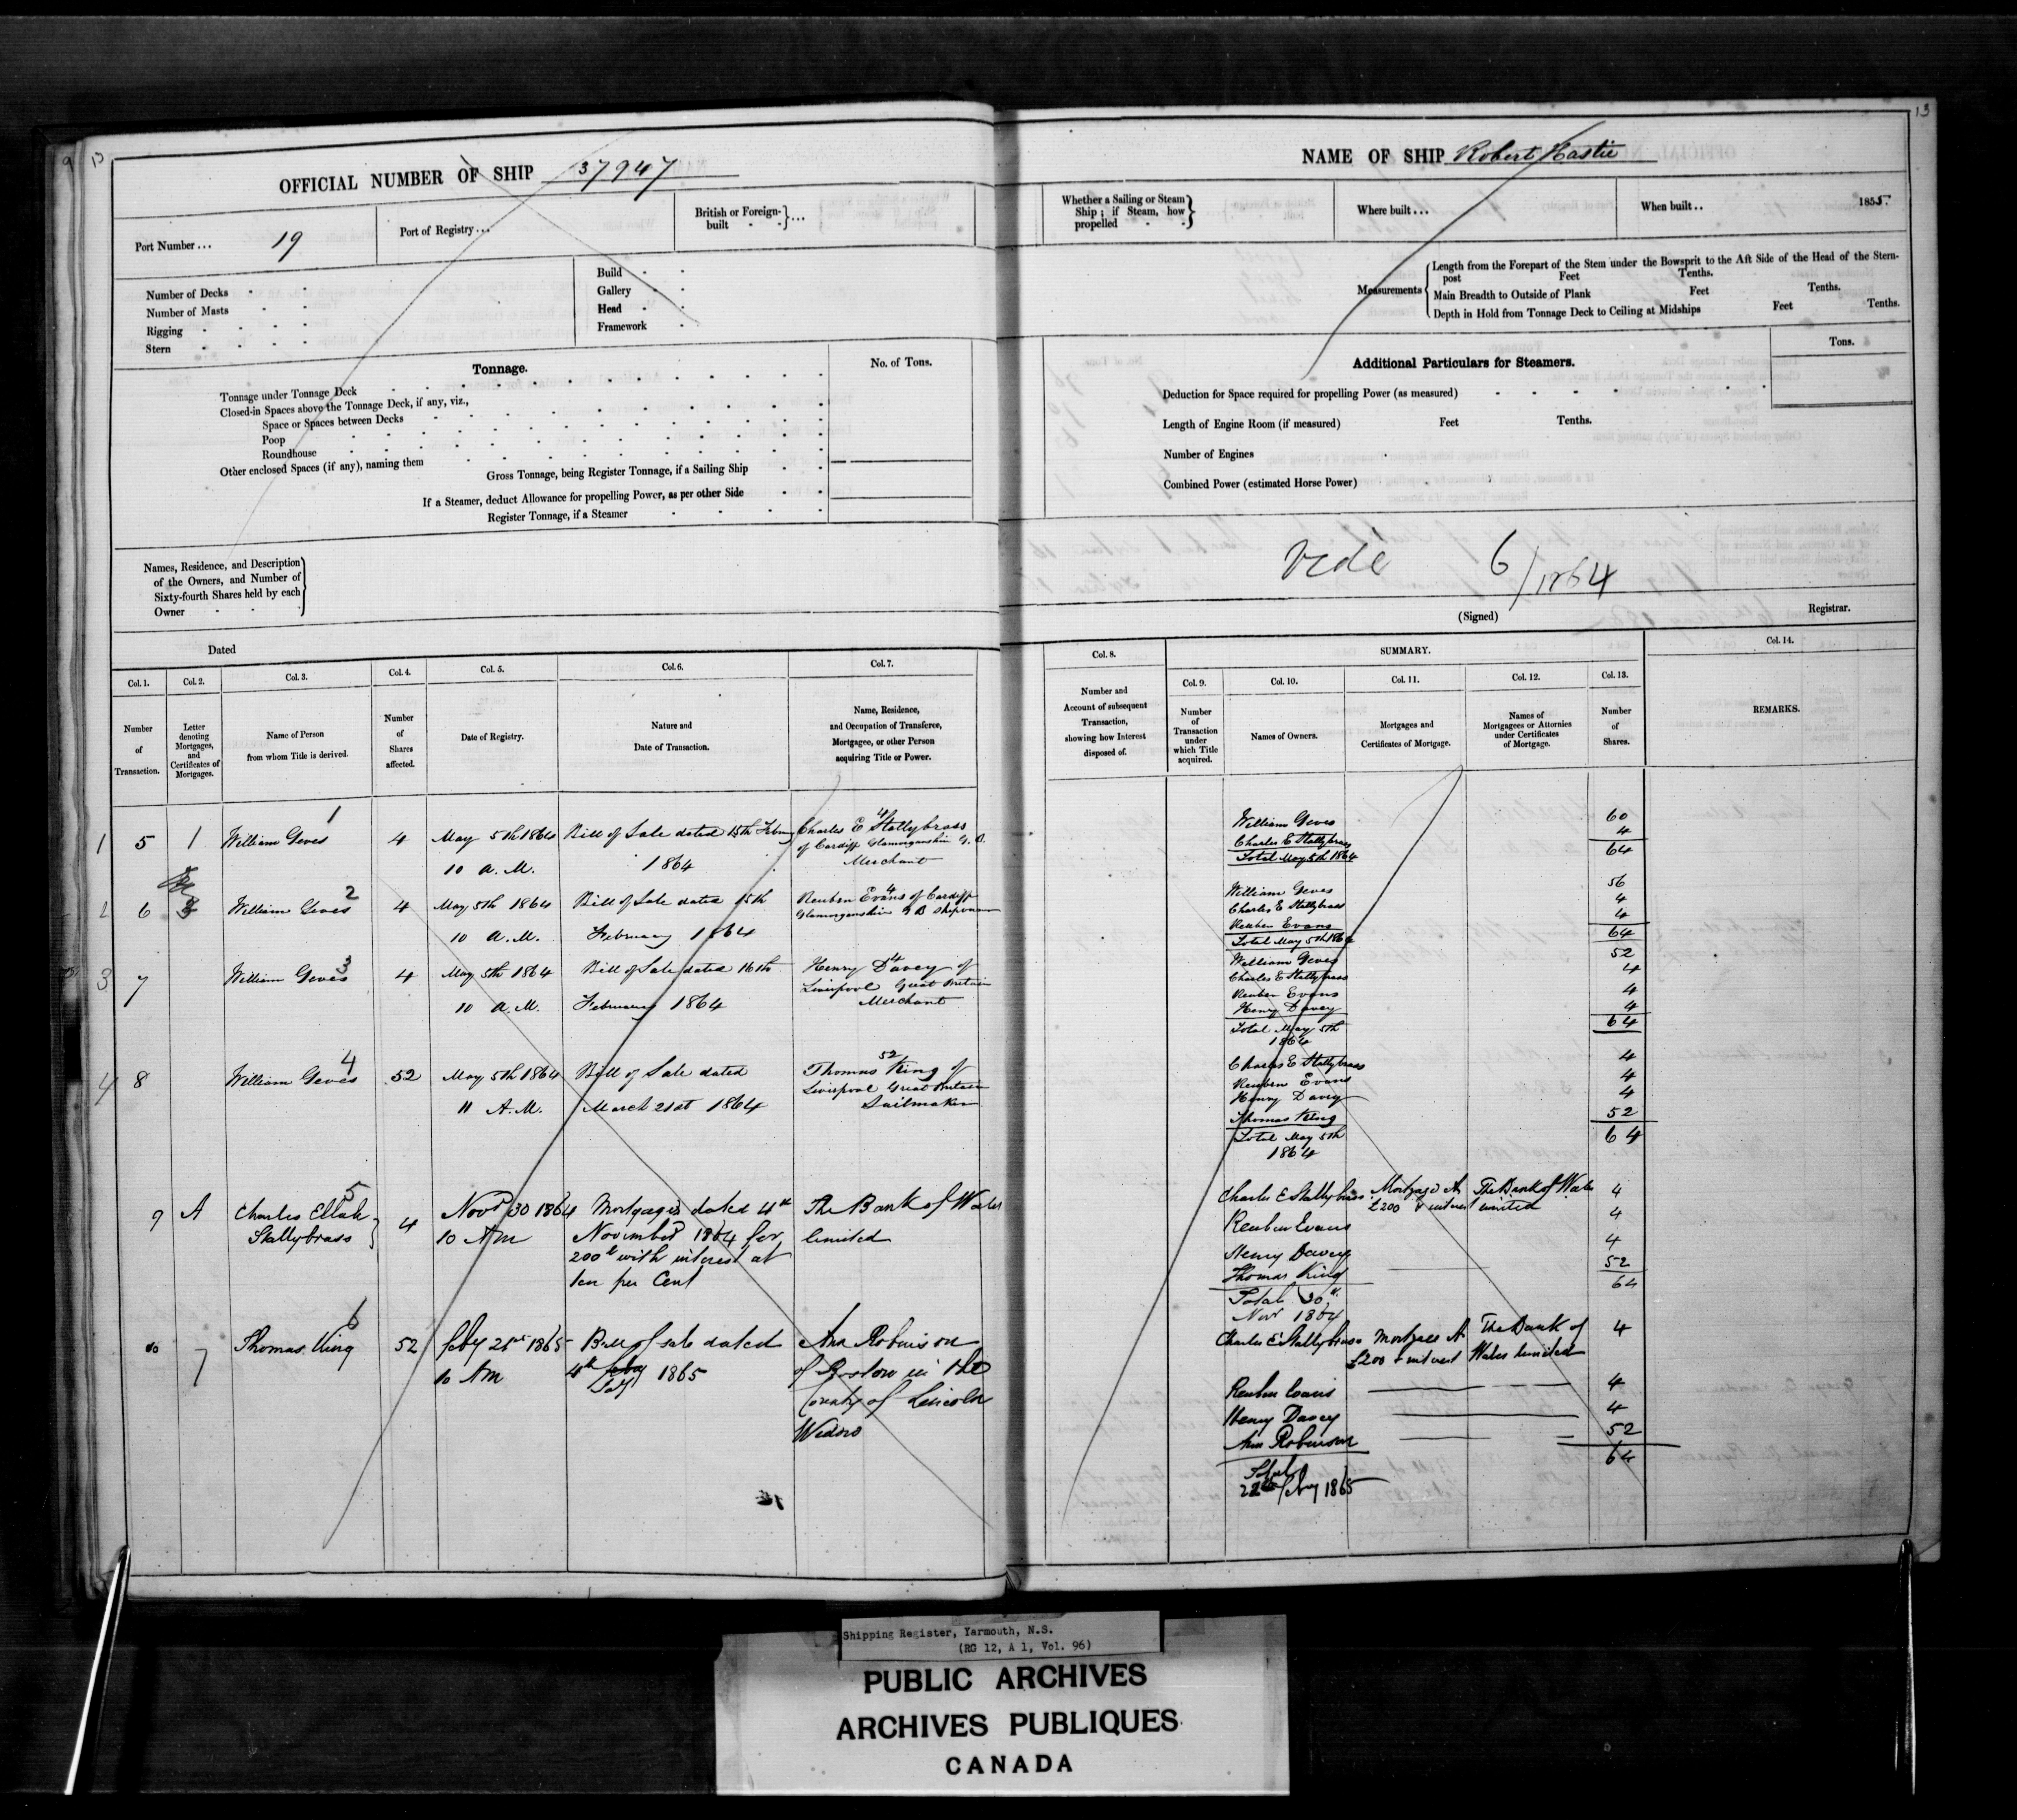 13
13
OFFICIAL NUMBER OF SHIP 37947
Port Number ... 19
Port of Registry ...
British or Foreign-built ...
Number of Decks
Number of Masts
Rigging
Stern
Build
Gallery
Head
Framework
Tonnage.
No. of Tons.
Tonnage under Tonnage Deck
Closed-in Spaces above the Tonnage Deck, if any, viz.,
Space or Spaces between Decks
Poop
Roundhouse
Other enclosed Spaces (if any), naming them
Gross Tonnage, being Register Tonnage, if a Sailing Ship
If a Steamer, deduct Allowance for propelling Power, as per other Side
Register Tonnage, if a Steamer
Names, Residence, and Description
of the Owners, and Number of
Sixty-fourth Shares held by each
Owner
Dated
Col. 1. Col. 2. Col. 3. Col. 4. Col. 5. Col. 6. Col. 7.
Number of Transaction.
Letter denoting Mortgages, and Certificates of Mortgages.
Name of Person from whom Title is derived.
Number of Shares affected.
Date of Registry.
Nature and Date of Transaction.
Name, Residence, and Occupation of Transferee, Mortgagee, or other Person acquiring Title or Power.
1
1 5 1 William Geves 4 May 5th 1864 Bill of Sale dated 15th Febry Charles E Stallybrass
of Cardiff Glamorganshire G. B.
10 A.M. 1864 Merchant
2
2 6 William Geves 4 May 5th 1864 Bill of Sale dated 15th Reuben Evans of Cardiff
Glamorganshire G B
10 A.M. February 1864
3
3 7 William Geves 4 May 5th 1864 Bill of Sale dated 16th Henry Davey of
Liverpool Great Britain
10 A.M. February 1864 Merchant
4
4 8 William Geves 52 May 5th 1864 Bill of Sale dated Thomas King of
Liverpool Great Britain
11 A.M. March 21st 1864 Sailmaker
5
9 A Charles Ellah 4 Novr 30 1864 Mortgage dated 4th The Bank of Wales
Stallybrass 10 AM November 1864 for limited
200£ with interest at
ten per Cent
6
10 7 Thomas King 52 feby 1865 Bill of sale dated Ann Robinson
10 AM 4th feby 1865 of Boston in the
County of Lincoln
Widow
NAME OF SHIP Robert Hastie
Whether a Sailing or Steam
Ship; if Steam, how
propelled
Where built ...
When built .. 1855.
Measurements
Length from the Forepart of the Stem under the Bowsprit to the Aft Side of the Head of the Stern-
post Feet Tenths.
Main Breadth to Outside of Plank Feet Tenths.
Depth in Hold from Tonnage Deck to Ceiling at Midships Feet Tenths.
Additional Particulars for Steamers.
Tons.
Deduction for Space required for propelling Power (as measured)
Length of Engine Room (if measured) Feet Tenths.
Number of Engines
Combined Power (estimated Horse Power)
Vide 6/1864
(Signed) Registrar.
Col. 8. SUMMARY. Col. 14.
Col. 9. Col. 10. Col. 11. Col. 12. Col. 13.
Number and Account of subsequent Transaction, showing how Interest disposed of.
Number of Transaction under which Title acquired.
Names of Owners.
Mortgages and Certificates of Mortgage.
Names of Mortgagees or Attornies under Certificates of Mortgage.
Number of Shares.
REMARKS.
William Geves 60
Charles E Stallybrass 4
Total May 5th 1864 64
William Geves 56
Charles E Stallybrass 4
Reuben Evans 4
Total May 5th 1864 64
William Geves 52
Charles E Stallybrass 4
Reuben Evans 4
Henry Davey 4
Total May 5th 64
1864
Charles E Stallybrass 4
Reuben Evans 4
Henry Davey 4
Thomas King 52
Total May 5th 64
1864
Charles E Stallybrass Mortgage A The Bank of Wales 4
£200 & interest limited
Reuben Evans 4
Henry Davey 4
Thomas King 52
Total 30th 64
Novr 1864
Charles E Stallybrass Mortgage A The Bank of 4
£200 & interest Wales limited
Reuben Evans 4
Henry Davey 4
Ann Robinson 52
Total 64
feby 1865
Shipping Register, Yarmouth, N.S.
(RG 12, A 1, Vol. 96)
PUBLIC ARCHIVES
ARCHIVES PUBLIQUES
CANADA